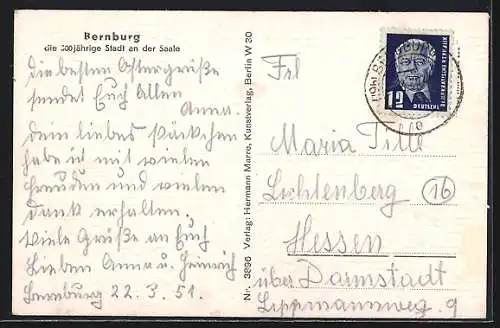 Bernburg
die 300jährige Stadt an der Saale
die besten Ostergrüße
sendet Euch Allen
Anna.
Dein liebes Päckchen
habe ich mit vielen
Freuden und vielen
dank erhalten.
Viele Grüße an Euch
Lieben Anna u. Heinrich
Bernburg 22.3.51.
Nr. 3896 Verlag: Hermann Marro, Kunstverlag, Berlin W 30
12
Frl
Maria Tille
Lichtenberg 16
Hessen
über Darmstadt
Lippmannsweg. 9